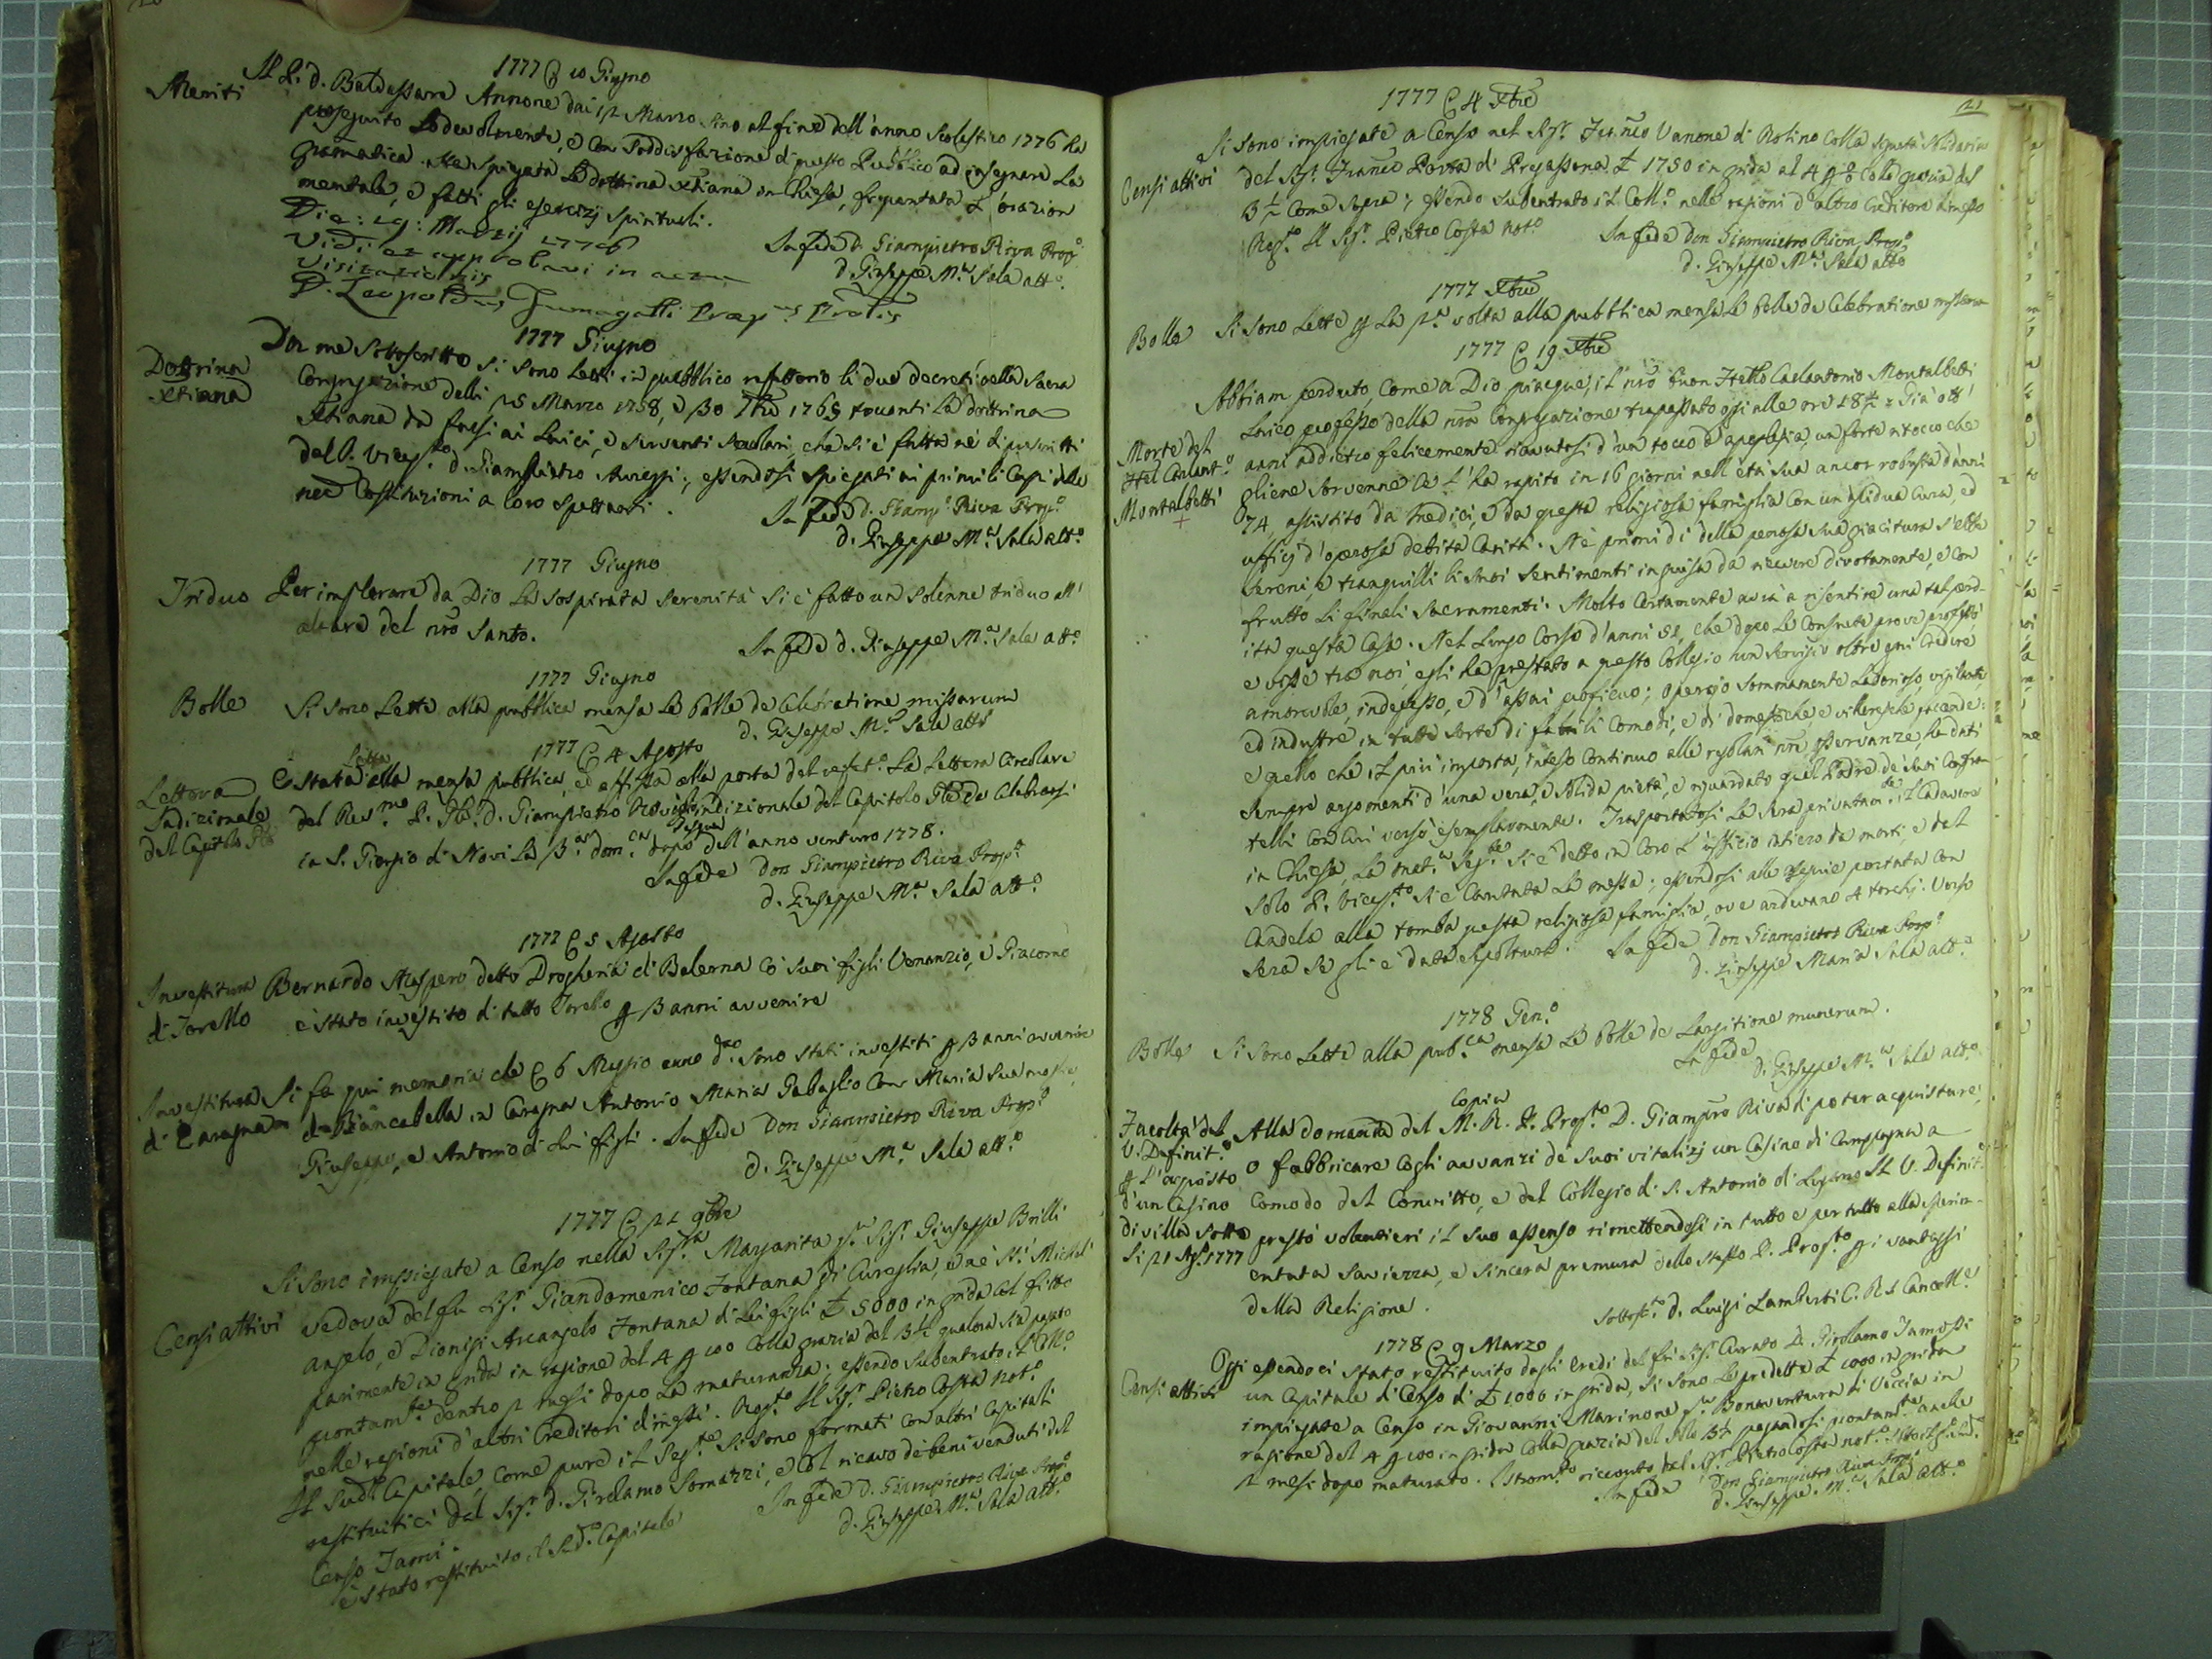 1777 @ 10 Giugno
Meriti Il P. d. Baldassare Annone dai 12 Marzo sino al fine dell'anno Scolastico 1776 ha
proseguito Lodevolmente, e con Soddisfazione di questo Pubblico ad insegnare La
Gramatica. Ha spiegata La dottrina Xtiana in Chiesa, frequentata L'orazion
mentale, e fatti gli esercizj spirituali.
In fede d. Giampietro Riva Prop.o
d. Giuseppe M.a Sala att.o
Die: 19: Martij 1776
Vidi et approbavi in actu
Visitationis
D. Leopoldus Fumagalli Præp.us Prālis
1777 Giugno
Dottrina
Xtiana
Da me Sottoscritto Si Sono Letti in pubblico refettorio li due decreti della Sacra
Congregazione delli 25 Marzo 1758, e 30 7bre 1765 toccanti La dottrina
Xtiana da farsi ai Laici, e serventi secolari, che si è fatta né di prescritti
dal P. Vicep.to d. Giampietro Auressi; essendosi spiegati ai primi li Capi delle
nr̄e Costituzioni a loro spettanti.
In fede d. Giamp.o Riva Prop.o
d. Giuseppe M.a Sala att.o
1777 Giugno
Triduo Per implorare da Dio La sospirata serenità Si è fatto un solenne triduo all'
altare del nr̄o Santo.
In fede d. Giuseppe M.a Sala att.o
1777 Giugno
Bolle Si sono Lette alla pubblica mensa Le Bolle de Celebratione missarum
d. Giuseppe M.a Sala att.o
1777 @ 4 Agosto
Lettera
Indizionale
del Capitolo Gle
È stata Letta alla mensa pubblica, ed affissa alla porta del refett.o La Lettera Circolare
del Rev.mo P. Gle. d. Giampietro indizionale del Capitolo Gle da Celebrarsi
in S. Giorgio di Novi La 3.a dom.ca dopo Pasqua dell'anno venturo 1778.
In fede Don Giampietro Riva Prop.o
d. Giuseppe M.a Sala att.o
1777 @ 5 Agosto
Investitura
di Torello
Bernardo Aspero detto Drogheria di Balerna Co' suoi figli Venanzio, e Giacomo
è stato investito di tutto Torello p 3 anni avvenire
Investitura
di Caragna
Si fa qui memoria che @ 6 Maggio anno d.o sono stati investiti p 3 anni avvenire
di Biancabella in Caragna Antonio Maria Gabaglio Con Maria Sua moglie,
Giuseppe, e Antonio di Lui figli. In fede Don Giampietro Riva Prop.o
d. Giuseppe M.a Sala att.o
1777 @ 21 9bre
Censi attivi
Si sono impiegate a Censo nella Sig.ra Margarita q. Sig.r Giuseppe Brilli
vedova del fu Sig.r Giandomenico Fontana di Cureglia, e ne' Sri Michel'
angelo, e Dionigi Arcangelo Fontana di Lei figli £ 5000 in grida al fitto
parimente in grida in ragione del 4 p 100 Colla grazia del 3½ qualora sia pagato
prontam.te dentro 2 mesi dopo La maturanza; essendo Subentrato il Coll.o
nelle ragioni d'altri Creditori dimessi. Rog.to Il Sig.r Pietro Costa not.o
Il Sud.o Capitale, come pure il Seg.te si sono formati con altri Capitali
restituitici dal Sig.r d. Girolamo Somazzi, e col ricavo de' beni venduti del
Censo Jami.
è stato restituito il Sud.o Capitale In fede D. Giampietro Riva Prop.o
d. Giuseppe M.a Sala att.o
21
1777 @ 4 Xbre
Censi attivi
Si sono impiegate a Censo nel Sig.r Fran.co Vanone di Rotino Colla Sigurtà Solidaria
del Sig.r Franco Porta di Pregassona £ 1750 in grida al 4 p % Colla grazia del
3½ Come Sopra; essendo Subentrato il Coll.o nelle ragioni d'altro Creditore dimesso
Rog.to Il Sig.r Pietro Costa not.o In fede Don Giampietro Riva Prop.o
d. Giuseppe M.a Sala att.o
1777 Xbre
Bolle Si sono Lette p La 2.a volta alla pubblica mensa Le Bolle de Celebratione missarum
1777 @ 19 Xbre
Morte del
Htel Carlant.o
Montalbetti
+
Abbiam perduto, Come a Dio piacque, il nr̄o buon Htello Carlantonio Montalbetti
Laico professo della nr̄a Congregazione trapassato oggi alle ore 18½. Già ott'
anni addietro felicemente riavutosi d'un tocco d'apoplesia, un forte ritocco che
gliene Sorvenne Ce L'ha rapito in 16 giorni nell'età Sua ancor robusta d'anni
74, assistito da Medici, e da questa religiosa famiglia Con un'assidua Cura, ed
ufficj d'operosa debita Carità. Ne' primi dì della penosa Sua giacitura s'ebbe
sereni, e tranquilli li Suoi Sentimenti in guisa da ricevere divotamente, e Con
frutto Li finali Sacramenti. Molto Certamente avrà a risentire una tal perd-
ita questa Casa. Nel Lungo Corso d'anni 51, che dopo Le Consuete prove professò
e visse tra noi, egli ha prestato a questo Collegio un Servigio oltre ogni Credere
amorevole, indefesso, e d'assai proficuo; operajo Sommamente Laborioso, vigilante,
ed industre in tutte Sorte di fabrili Comodi, e di domestiche, e villeresche faccende:
e quello che il più importa, inteso Continuo alle regolari nr̄e osservanze, ha dati
Sempre argomenti d'una vera, e Solida pietà, e riguardato qual Padre de' Suoi Confra-
telli Con Cui versò esemplarmente. Trasportatosi La Sera privatam.te il Cadavere
in Chiesa, La mat.a Seg.te Si è detto in Coro L'ufficio intiero da morti, e dal
Solo P. Vicep.to Si è Cantata La messa; essendosi alle esequie portata Con
Candela alla tomba questa religiosa famiglia, ove ardevano 4 torchj. Verso
Sera Se gli è data Sepoltura. In fede Don Giampietro Riva Prop.o
d. Giuseppe Maria Sala att.o
1778 Gen.o
Bolle Si sono Lette alla pub.ca mensa Le Bolle de Largitione munerum.
In fede
d. Giuseppe M.a Sala att.o
Copia
Facoltà del
V. Definit.o
p L'acquisto
d'un Casino
di villa Sotto
Li 21 Ag.o 1777
Alla domanda del M. R. P. Prop.to D. Giampro Riva di poter acquistare,
o fabbricare Cogli avvanzi de' Suoi vitalizj un Casino di Campagna a
Comodo del Convitto, e del Collegio di S. Antonio di Lugano Il V. Definit.o
prestò volentieri il Suo assenso rimettendosi in tutto e per tutto alla sperim-
entata Saviezza, e sincera premura dello stesso P. Prop.to p i vantaggi
della Religione.
Sottos.to D. Luigi Lamberti C. R. S. Cancell.e
1778 @ 9 Marzo
Censi attivi
Oggi essendoci stato restituito dagli Eredi del fu Sig.r Curato D. Girolamo Tamossi
un Capitale di Censo di £ 1000 in grida, si sono Le predette £ 1000 in grida
impiegate a Censo in Giovanni Marinone q. Bonaventura di Veccia in
ragione del 4 p 100 in grida Colla grazia del 3½ pagandosi prontam.te anche
2 mesi dopo maturato. Istrom.to ricevuto dal Sig.r Pietro Costa not.o
In fede Don Giampietro Riva Prop.o
d. Giuseppe M.a Sala att.o